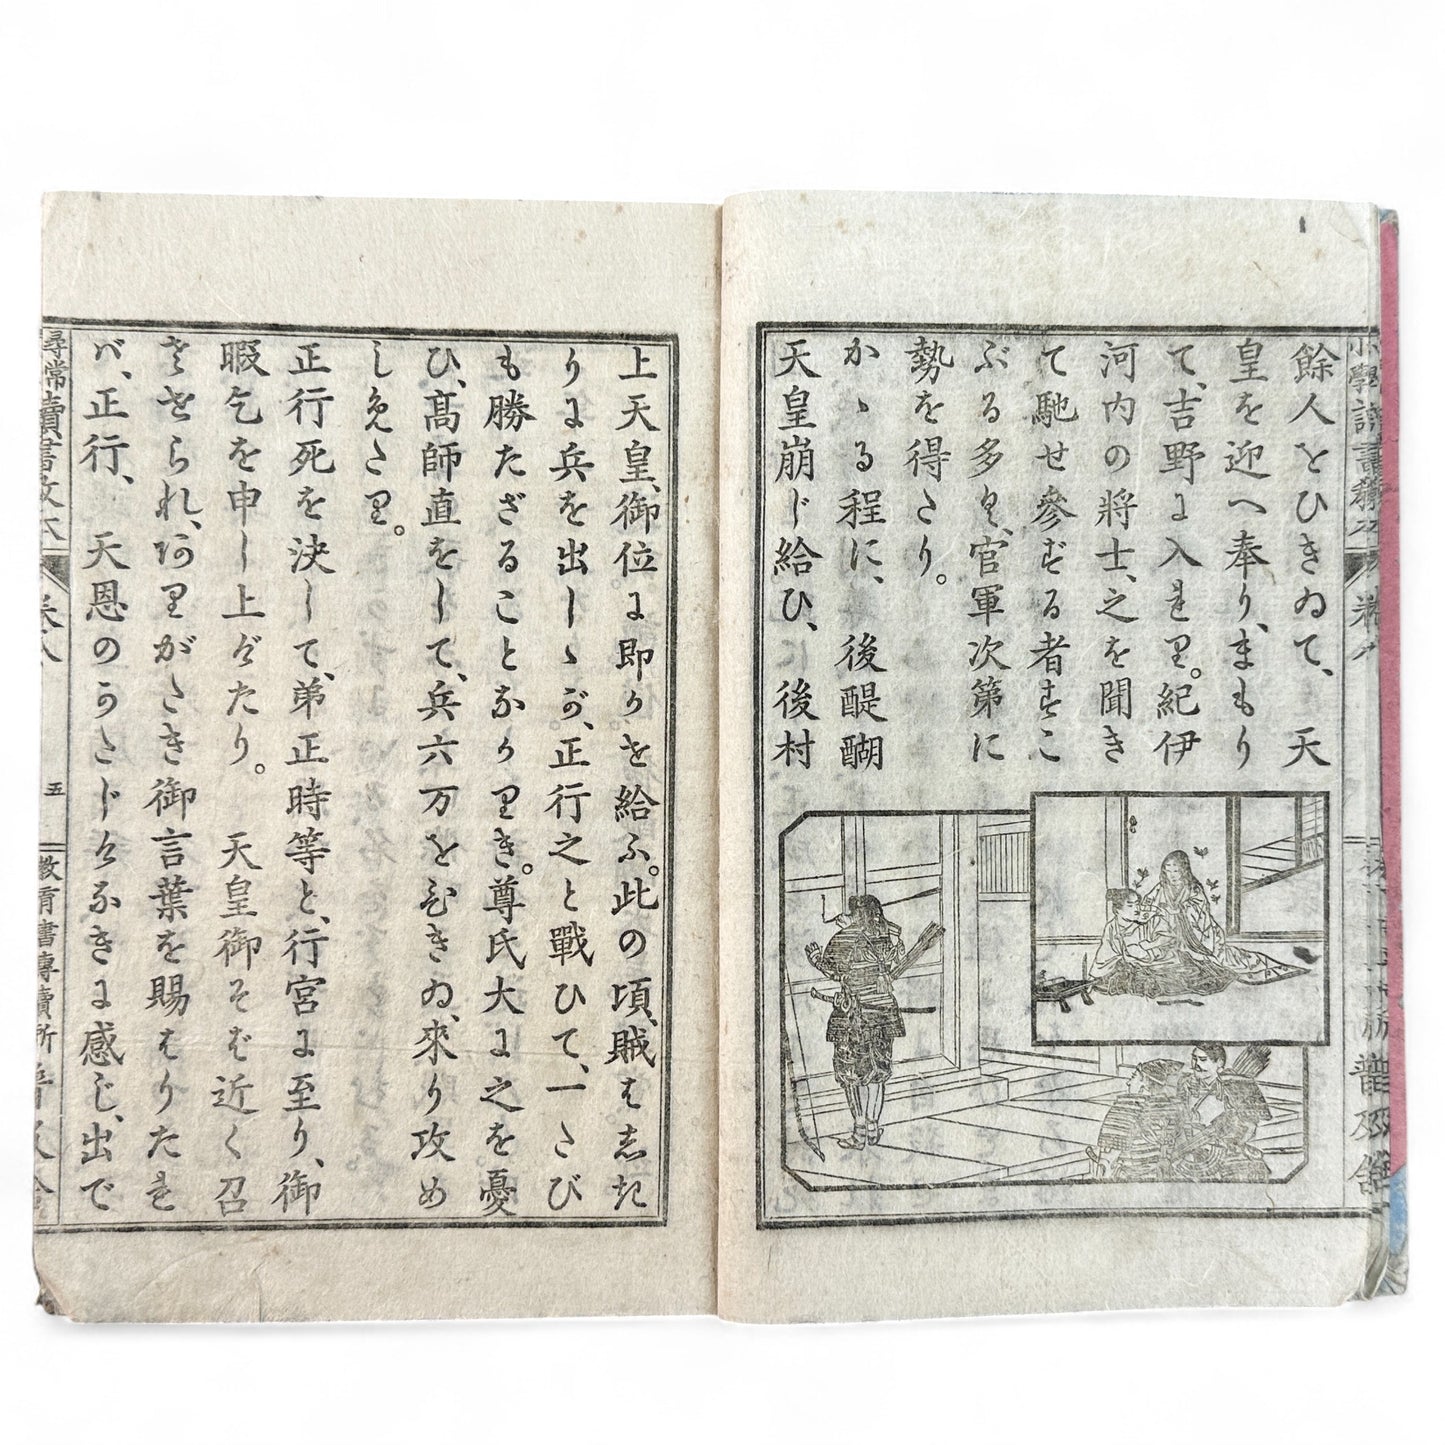 餘人をひきゐて、　天
皇を迎へ奉り、まもり
て、吉野に入れり。紀伊
河内の將士、之を聞き
て馳せ參ずる者すこ
ぶる多く、官軍次第に
勢を得たり。
かゝる程に、　後醍醐
天皇崩じ給ひ、後村
上天皇、御位に即かせ給ふ。此の頃、賊はしき
りに兵を出しゝが、正行之と戰ひて、一たび
も勝たざることなかりき。尊氏大に之を憂
ひ、高師直をして、兵六万をひきゐ、來り攻め
しめたり。
正行死を決して、弟正時等と、行宮に至り、御
暇乞を申し上げたり。　天皇御そば近く召
させられ、ありがたき御言葉を賜はりたれ
ば、正行、　天恩のかたじけなきに感じ、出で
尋常讀書教本
卷八
五
教育書專賣所普及舍